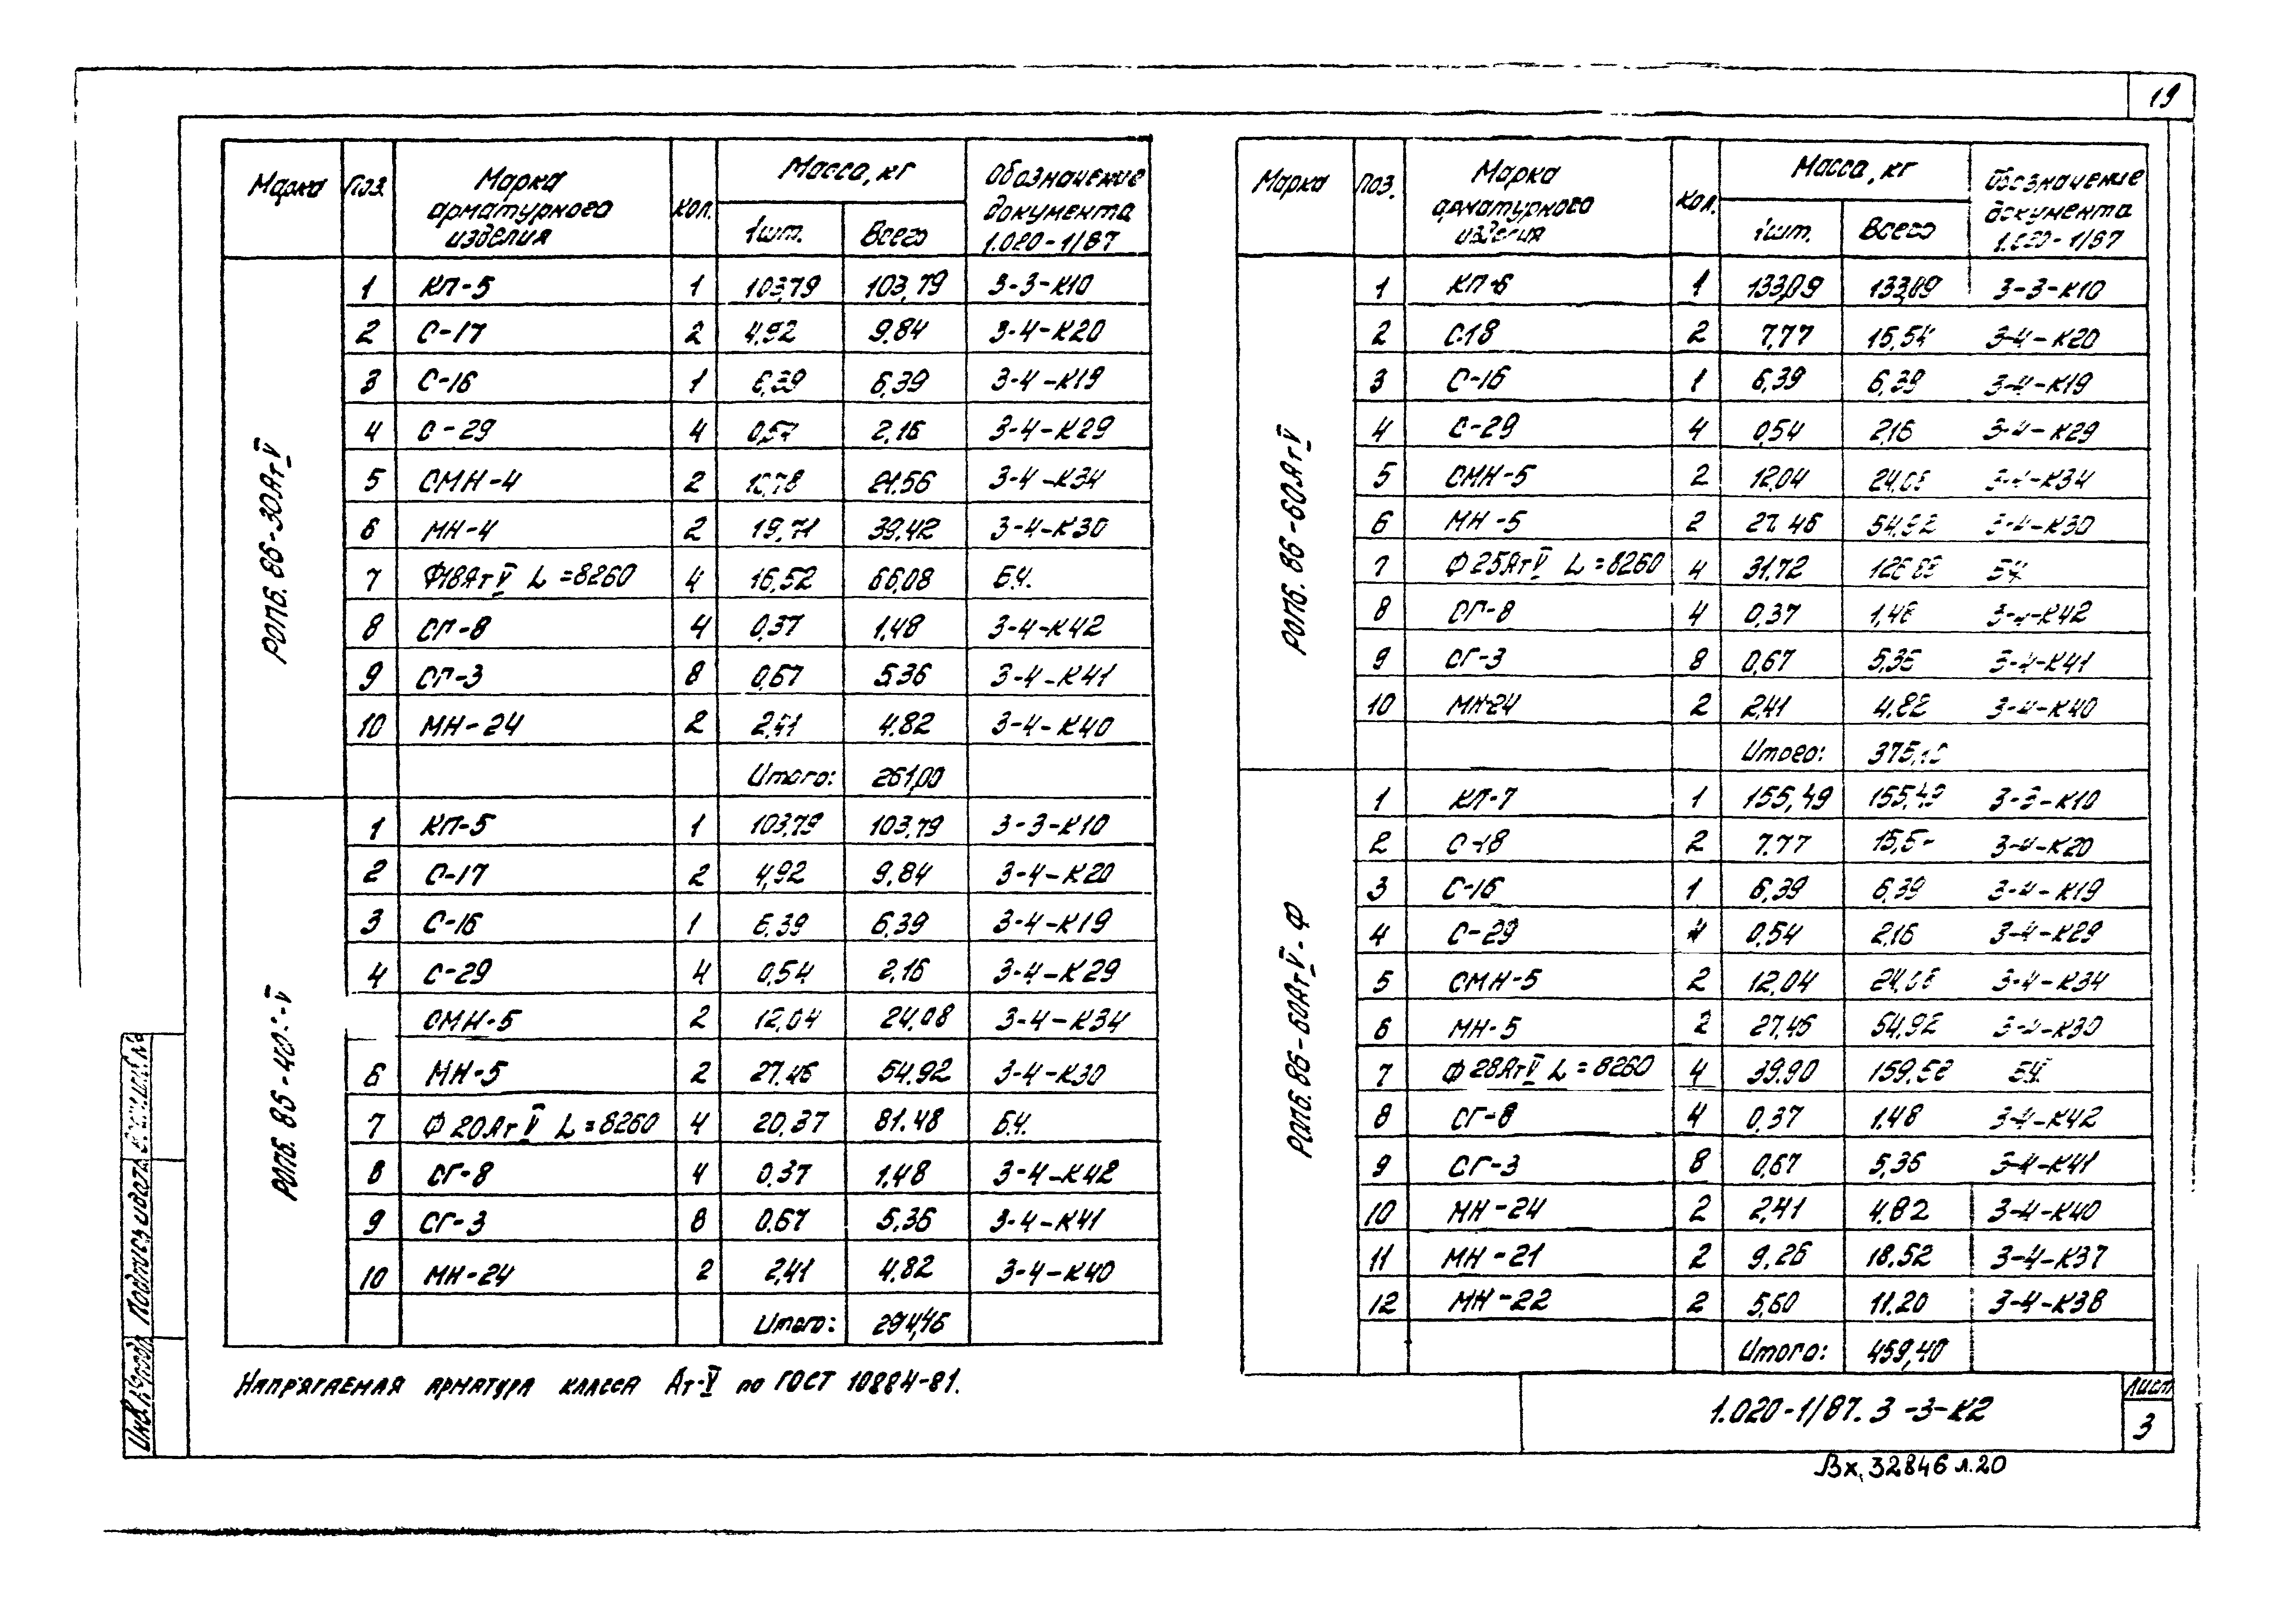 19
Марка Поз. Марка арматурного изделия Кол. Масса, кг Обозначение документа 1.020-1/87
1шт. Всего
РОП6.86-30АтV
1 КП-5 1 103,79 103,79 3-3-К10
2 С-17 2 4,92 9,84 3-4-К20
3 С-16 1 6,39 6,39 3-4-К19
4 С-29 4 2,16 3-4-К29
5 СМН-4 2 10,78 21,56 3-4-К34
6 МН-4 2 19,71 39,42 3-4-К30
7 Ф18АтV L=8260 4 16,52 66,08 Б.Ч.
8 СГ-8 4 0,37 1,48 3-4-К42
9 СГ-3 8 0,67 5,36 3-4-К41
10 МН-24 2 2,41 4,82 3-4-К40
Итого: 261,00
РОП6.86-40
1 КП-5 1 103,79 103,79 3-3-К10
2 С-17 2 4,92 9,84 3-4-К20
3 С-16 1 6,39 6,39 3-4-К19
4 С-29 4 0,54 2,16 3-4-К29
СМН-5 2 12,04 24,08 3-4-К34
6 МН-5 2 27,46 54,92 3-4-К30
7 Ф20АтV L=8260 4 20,37 81,48 Б.Ч.
8 СГ-8 4 0,37 1,48 3-4-К42
9 СГ-3 8 0,67 5,36 3-4-К41
10 МН-24 2 2,41 4,82 3-4-К40
Итого: 294,46
Напрягаемая арматура класса Ат-V по ГОСТ 10884-81.
Марка Поз. Марка арматурного изделия Кол. Масса, кг Обозначение документа 1.020-1/87
1шт. Всего
РОП6.86-60АтV
1 КП-6 1 133,09 133,09 3-3-К10
2 С-18 2 7,77 15,54 3-4-К20
3 С-16 1 6,39 6,39 3-4-К19
4 С-29 4 0,54 2,16 3-4-К29
5 СМН-5 2 12,04 24,08 3-4-К34
6 МН-5 2 27,46 54,92 3-4-К30
7 Ф25АтV L=8260 4 31,72 126,88 Б.Ч.
8 СГ-8 4 0,37 1,48 3-4-К42
9 СГ-3 8 0,67 5,36 3-4-К41
10 МН-24 2 2,41 4,82 3-4-К40
Итого:
РОП6.86-60АтV-Ф
1 КП-7 1 155,49 155,49 3-3-К10
2 С-18 2 7,77 3-4-К20
3 С-16 1 6,39 6,39 3-4-К19
4 С-29 4 0,54 2,16 3-4-К29
5 СМН-5 2 12,04 24,08 3-4-К34
6 МН-5 2 27,46 54,92 3-4-К30
7 Ф28АтV L=8260 4 39,90 Б.Ч.
8 СГ-8 4 0,37 1,48 3-4-К42
9 СГ-3 8 0,67 5,36 3-4-К41
10 МН-24 2 2,41 4,82 3-4-К40
11 МН-21 2 9,26 18,52 3-4-К37
12 МН-22 2 5,60 11,20 3-4-К38
Итого: 459,40
1.020-1/87.3-3-К2
Лист
3
Вх.32846 л.20
Инв.№подл. Подпись и дата